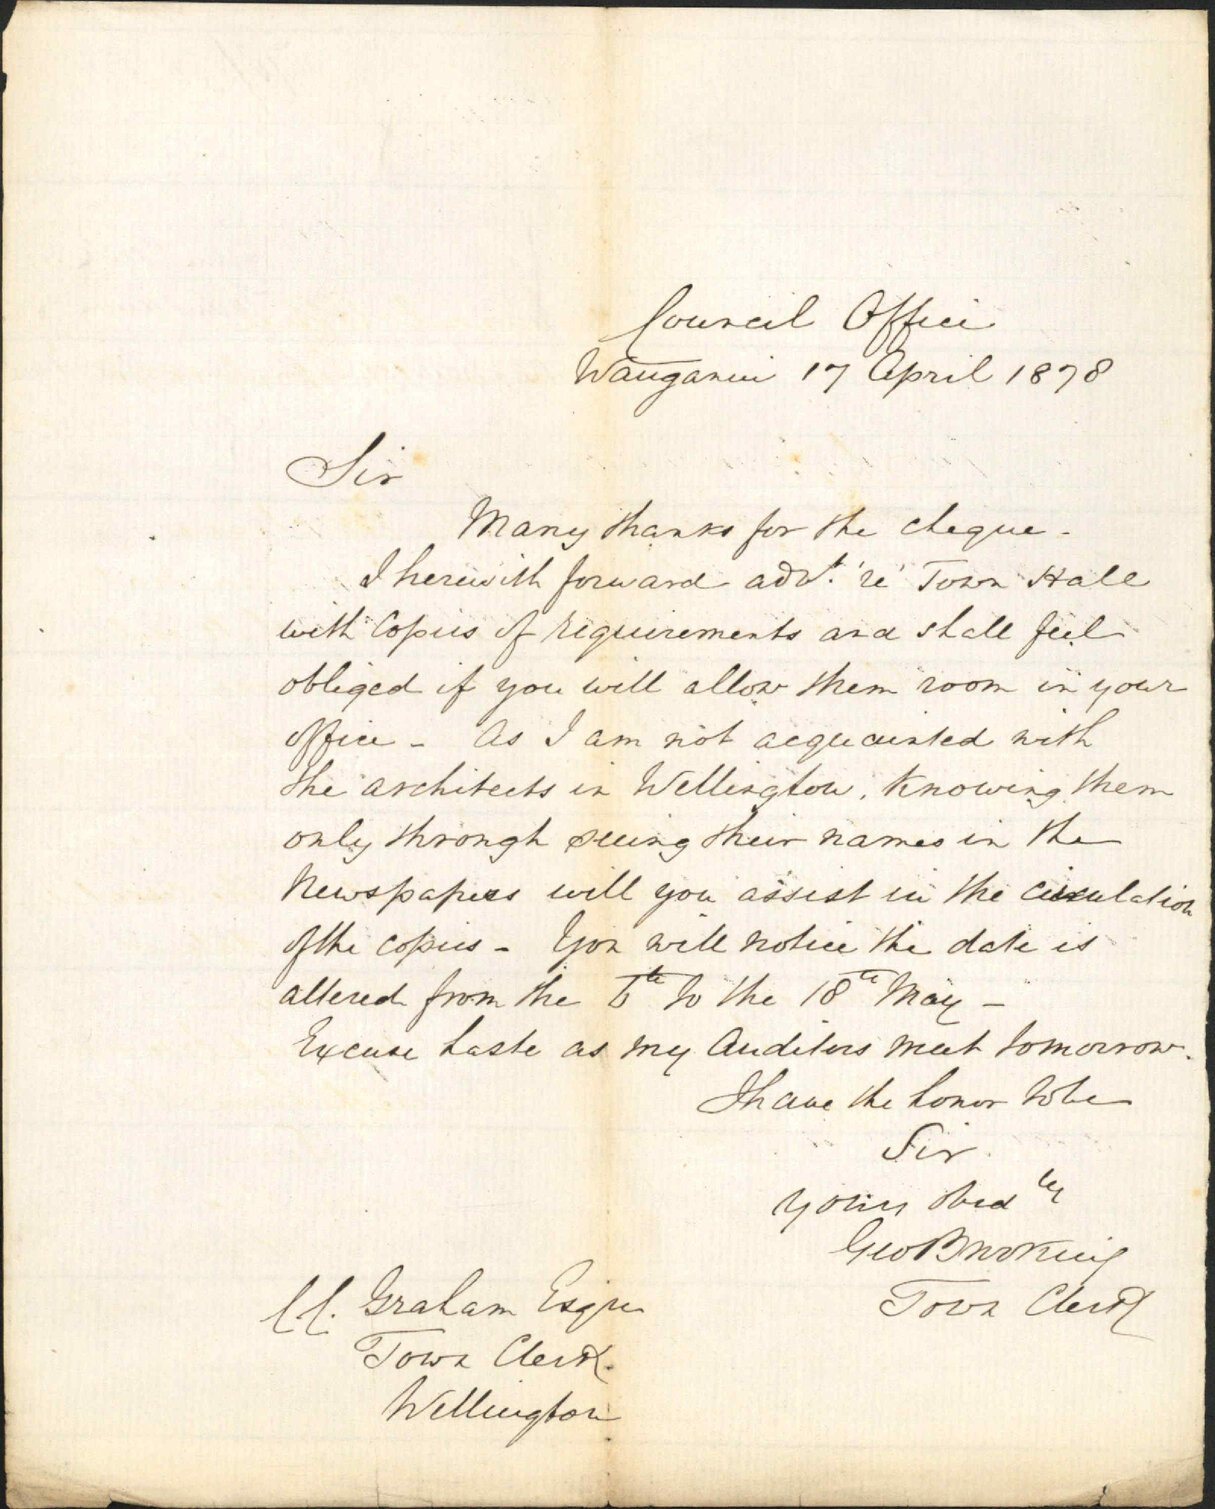 Council Office
Wanganui 17 April 1878
Sir
Many thanks for the cheque -
I herewith forward advt. 're' Town Hall
with Copies of requirements and shall feel
obliged if you will allow them room in your
office - As I am not acquainted with
the architects in Wellington, Knowing them
only through seeing their names in the
Newspapers will you assist in the circulation
of the copies - You will notice the date is
altered from the 6th to the 18th May -
Excuse haste as my Auditors meet tomorrow.
I have the honor to be
Sir
Yours obedtly
Geo Brooking
Town Clerk
C.C. Graham Esqre
Town Clerk.
Wellington